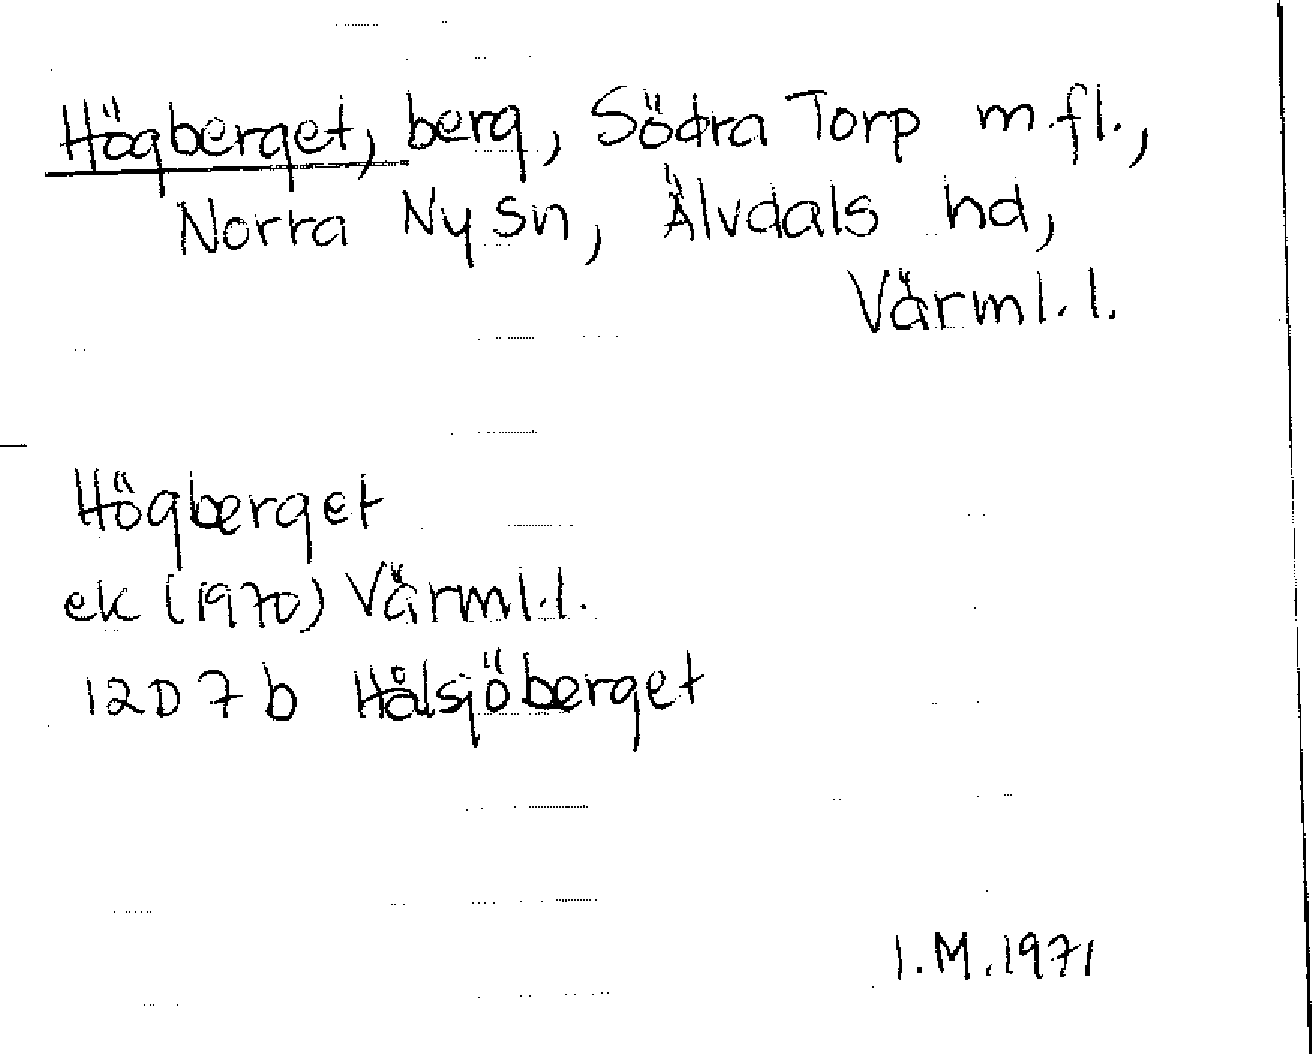 Högberget, berg, Södra Torp m.fl.,
Norra Ny sn, Älvdals hd,
Värml.l.
Högberget
ek (1970) Värml.l.
12D 7 b Hålsjöberget
I.M.1971